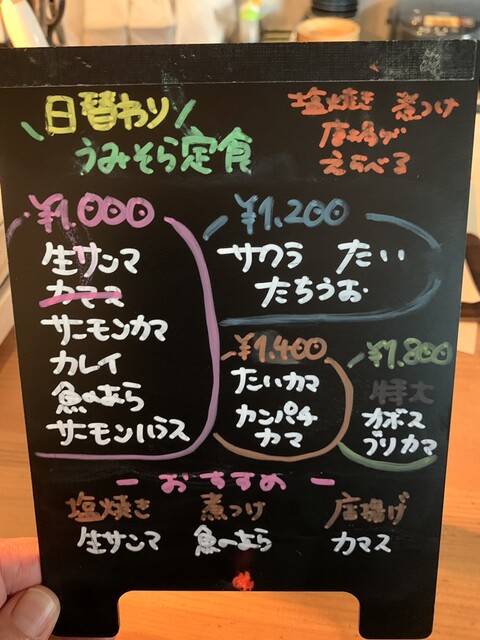 日替わり
うみそら定食
塩焼き 煮つけ
唐揚げ
えらべる
¥1,000
生サンマ
カマス
サーモンカマ
カレイ
魚へよら
サーモンハラス
¥1,200
サクラ たい
たちうお
¥1,400
たいカマ
カンパチ
カマ
¥1,800
特大
カボス
ブリカマ
おすすめ
塩焼き 煮つけ 唐揚げ
生サンマ 魚へよら カマス